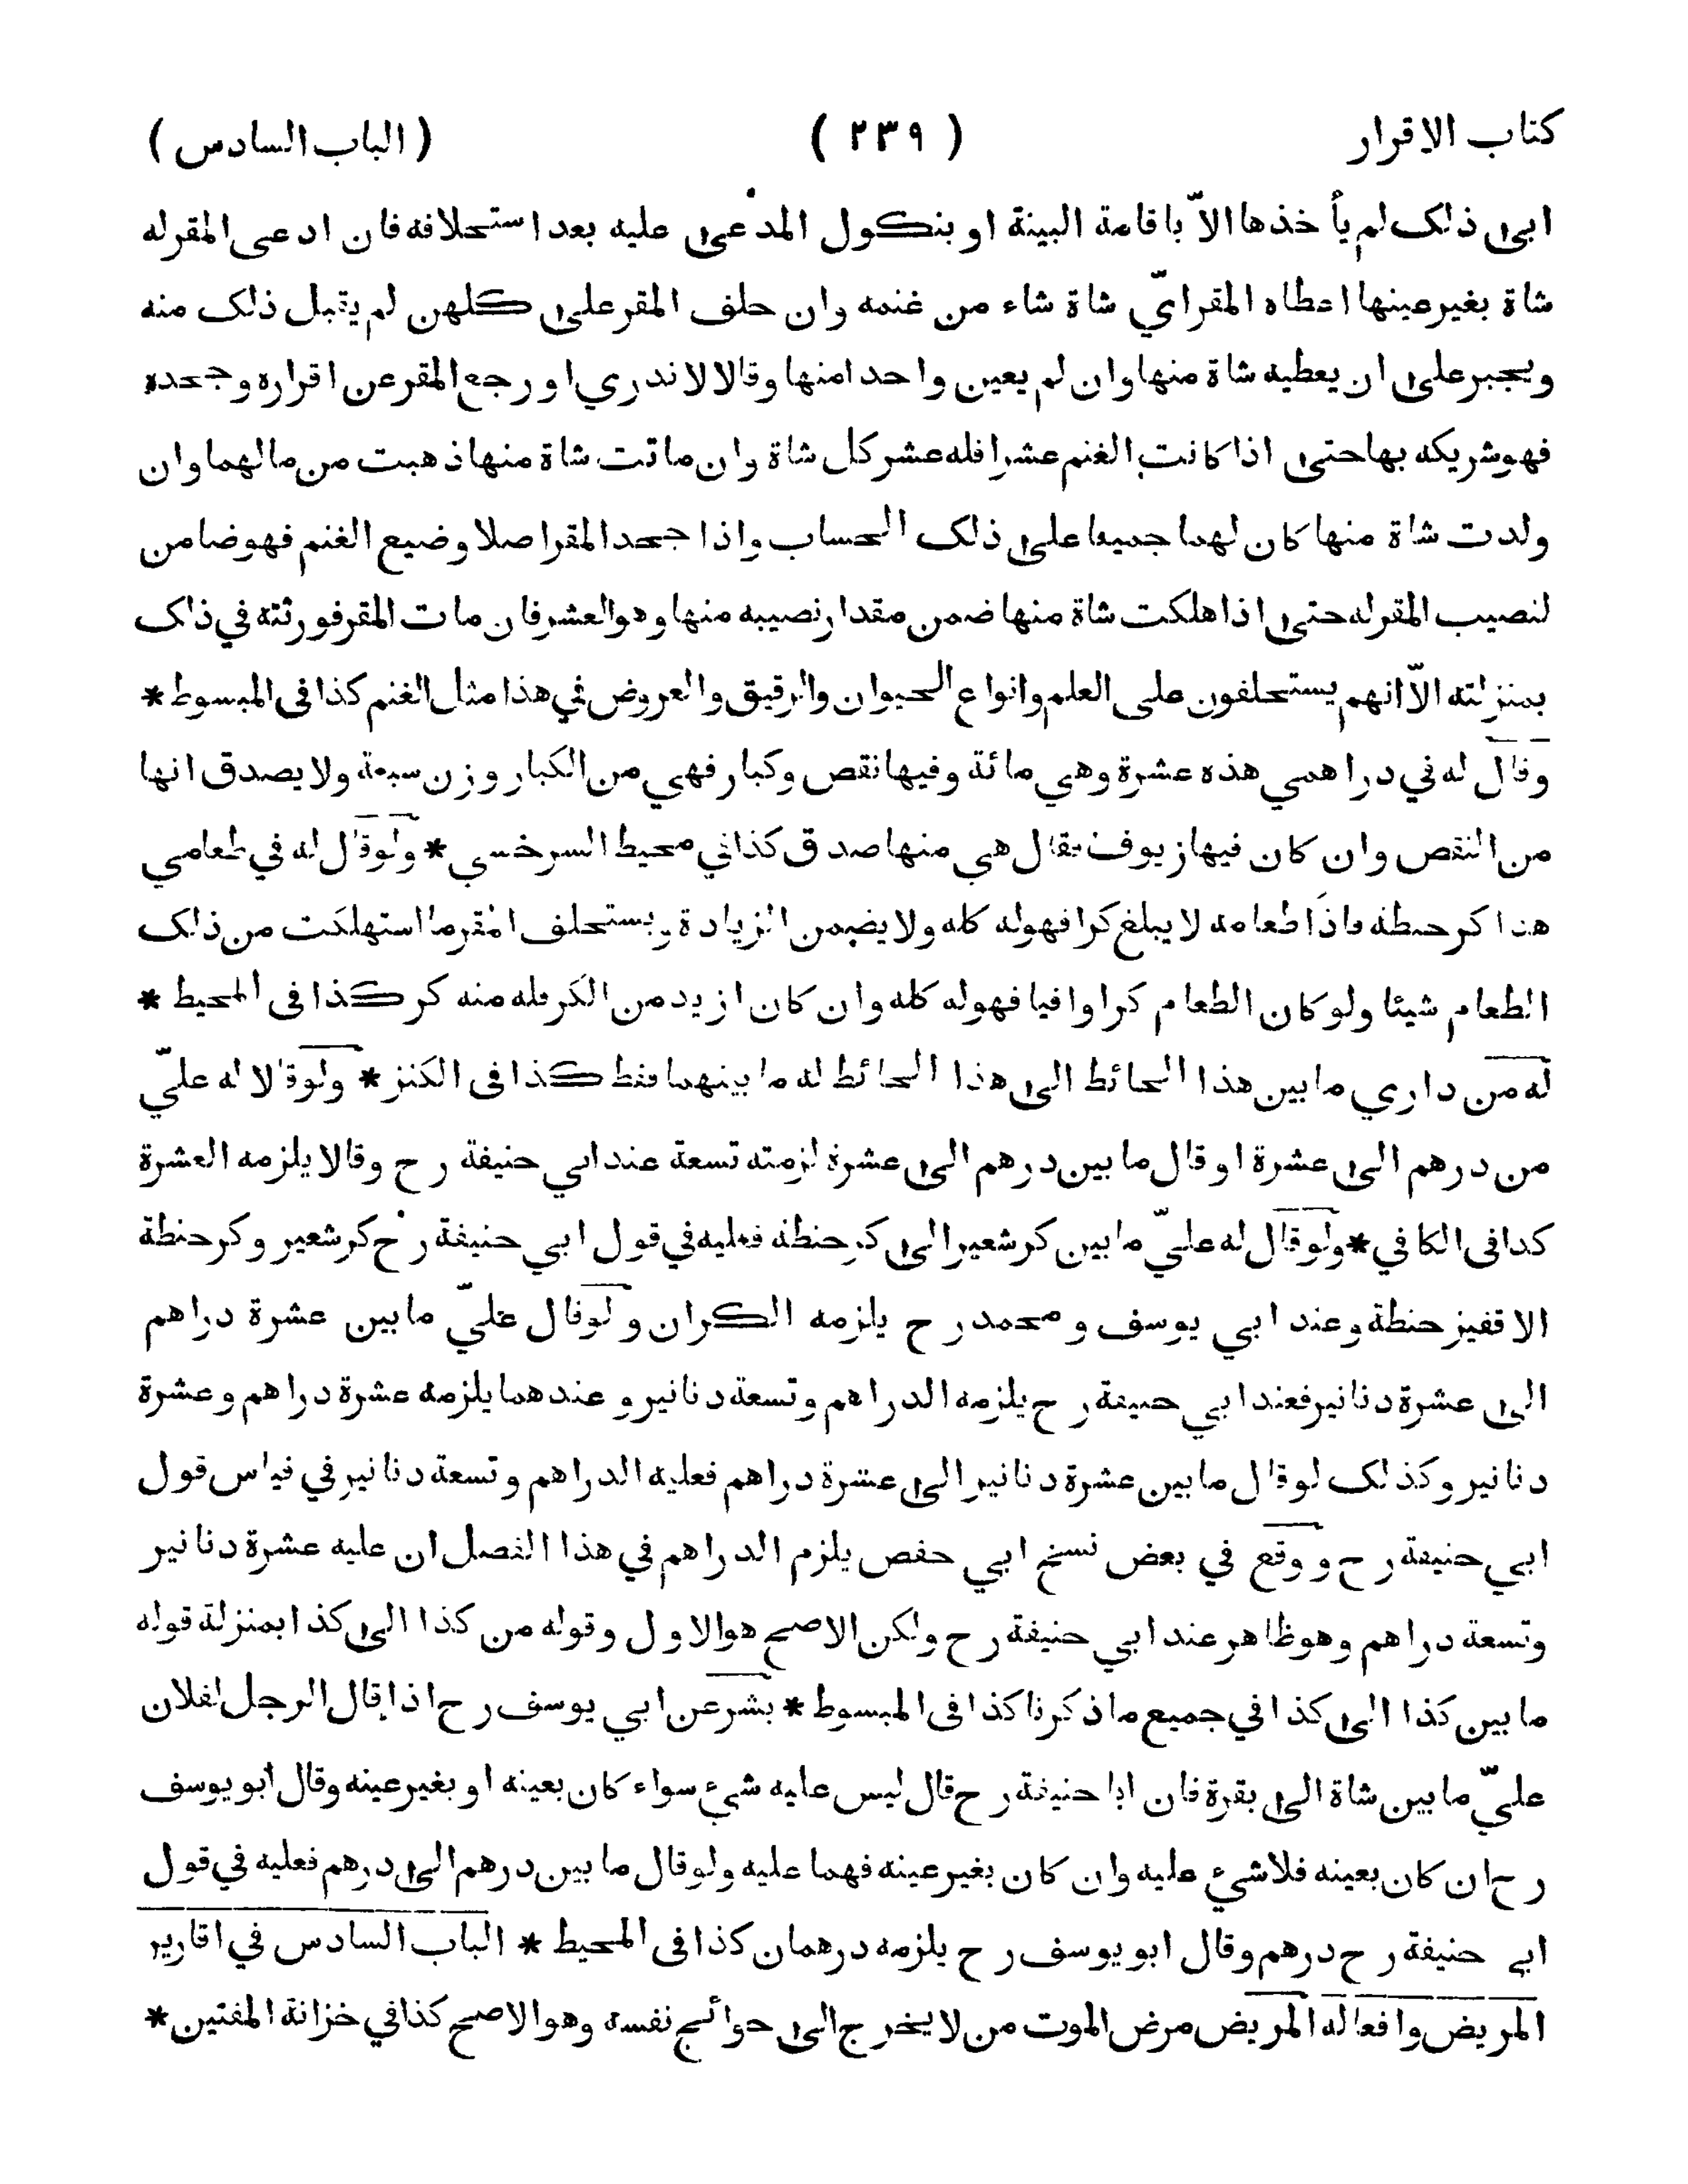 كتاب الاقرار ( ٢٣٩ ) ( الباب السادس )
ابى ذلك لم يأخذها الاّ باقامة البينة او بنكول المدعى عليه بعد استحلافه فان ادعى المقرله
شاة بغير عينها اعطاه المقر ايّ شاة شاء من غنمه وان حلف المقر على كلهن لم يقبل ذلك منه
ويجبر على ان يعطيه شاة منها وان لم يعين واحدا منها وقالا لا ندري او رجع المقر عن اقراره وجحده
فهو شريكه بها حتى اذا كانت الغنم عشرا فله عشر كل شاة وان ماتت شاة منها ذهبت من مالهما وان
ولدت شاة منها كان لهما جميعا على ذلك الحساب واذا جحد المقر اصلا وضيع الغنم فهو ضامن
لنصيب المقرله حتى اذا هلكت شاة منها ضمن مقدار نصيبه منها وهو العشر فان مات المقر فورثته في ذلك
بمنزلته الاّ انهم يستحلفون على العلم وانواع الحيوان والرقيق والعروض في هذا مثل الغنم كذا فى المبسوط *
وقال له في دراهمي هذه عشرة وهي مائة وفيها نقص وكبار فهي من الكبار وزن سبعة ولا يصدق انها
من النقص وان كان فيها زيوف فقال هي منها صدق كذا في محيط السرخسي * ولو قال له في طعامي
هذا كر حنطة فاذا طعامه لا يبلغ كرا فهو له كله ولا يضمن الزيادة ويستحلف المقر ما استهلكت من ذلك
الطعام شيئا ولو كان الطعام كرا وافيا فهو له كله وان كان ازيد من الكر فله منه كر كذا فى المحيط *
له من داري ما بين هذا الحائط الى هذا الحائط له ما بينهما فقط كذا فى الكنز * ولو قالا له عليّ
من درهم الى عشرة او قال ما بين درهم الى عشرة لزمته تسعة عند ابي حنيفة رح وقالا يلزمه العشرة
كذا فى الكافي * ولو قال له عليّ ما بين كر شعير الى كر حنطة فعليه في قول ابي حنيفة رح كر شعير وكر حنطة
الا قفيز حنطة وعند ابي يوسف ومحمد رح يلزمه الكران ولو قال عليّ ما بين عشرة دراهم
الى عشرة دنانير فعند ابي حنيفة رح يلزمه الدراهم وتسعة دنانير وعندهما يلزمه عشرة دراهم وعشرة
دنانير وكذلك لو قال ما بين عشرة دنانير الى عشرة دراهم فعليه الدراهم وتسعة دنانير في قياس قول
ابي حنيفة رح ووقع في بعض نسخ ابي حفص يلزم الدراهم في هذا الفصل ان عليه عشرة دنانير
وتسعة دراهم وهو ظاهر عند ابي حنيفة رح ولكن الاصح هو الاول وقوله من كذا الى كذا بمنزلة قوله
ما بين كذا الى كذا في جميع ما ذكرنا كذا فى المبسوط * بشر عن ابي يوسف رح اذا قال الرجل لفلان
عليّ ما بين شاة الى بقرة فان ابا حنيفة رح قال ليس عليه شيء سواء كان بعينه او بغير عينه وقال ابو يوسف
رح ان كان بعينه فلا شيء عليه وان كان بغير عينه فهما عليه ولو قال ما بين درهم الى درهم فعليه في قول
ابي حنيفة رح درهم وقال ابو يوسف رح يلزمه درهمان كذا فى المحيط * الباب السادس في اقارير
المريض وافعاله المريض مرض الموت من لا يخرج الى حوائج نفسه وهو الاصح كذا في خزانة المفتين *